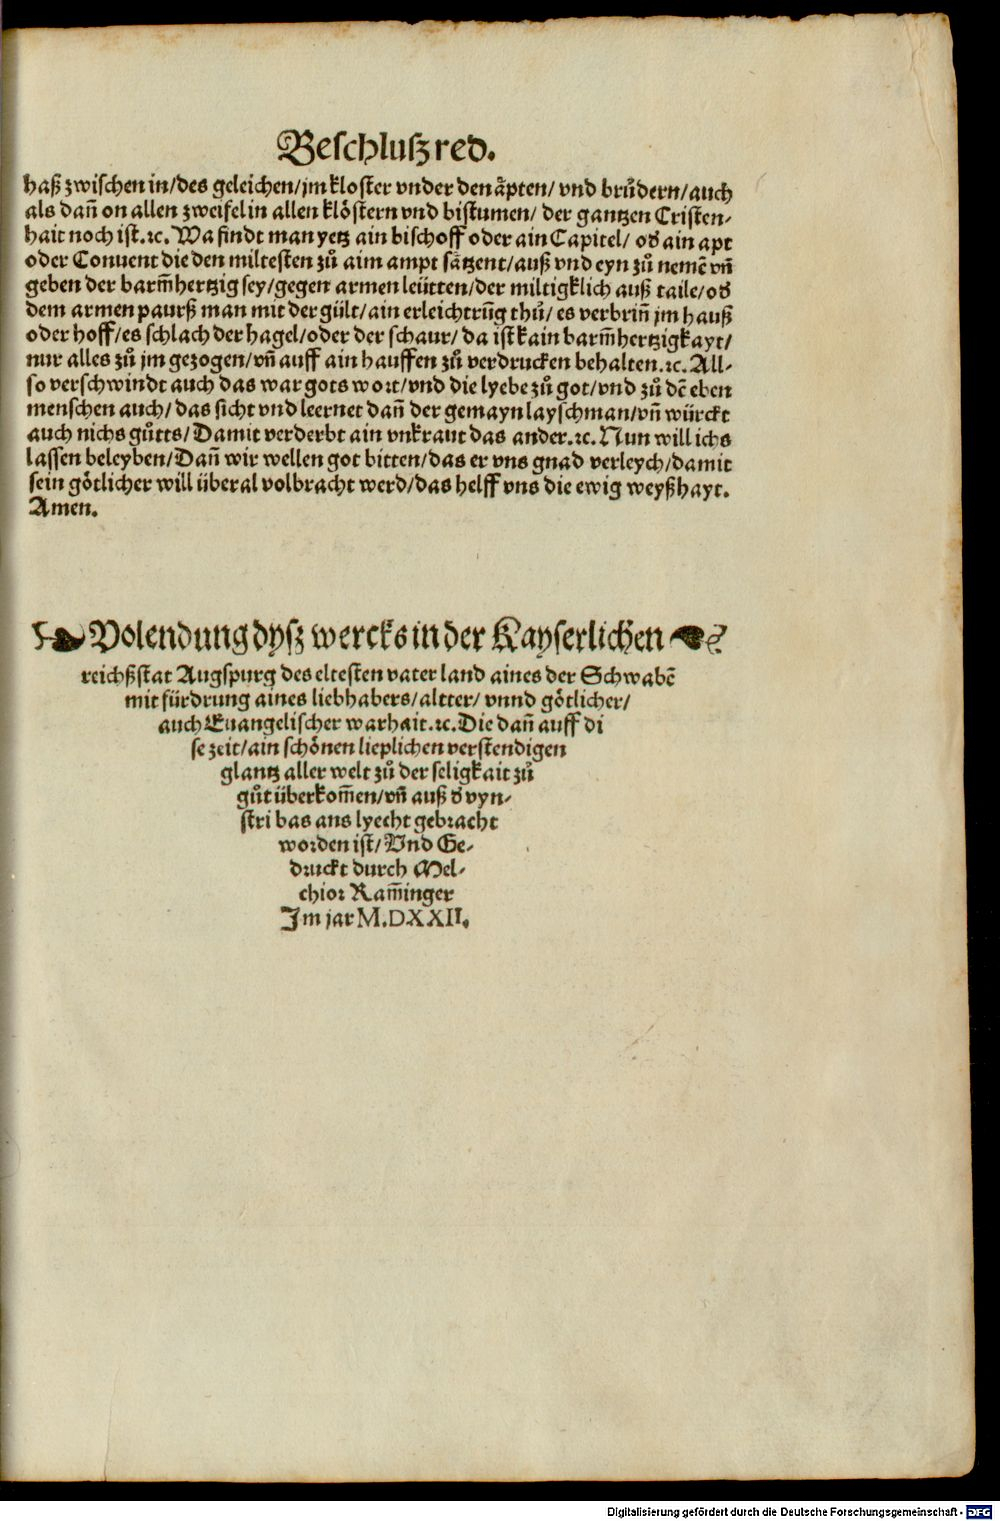 Beschlußred.
haß zwischen in/des geleichen/jm kloster vnder den äpten/ vnd brůdern/auch
als dañ on allen zweifel in allen klöstern vnd bistumen/ der gantzen Cristen-
hait noch ist.ꝛc. Wa findt man yetz ain bischoff oder ain Capitel/ oď ain apt
oder Conuent die den miltesten zů aim ampt sätzent/auß vnd eyn zů nemē vñ
geben der barm̃hertzig sey/gegen armen leütten/der miltigklich auß taile/oď
dem armen paurß man mit der gült/ain erleichtrūg thů/ es verbriñ jm hauß
oder hoff/es schlach der hagel/oder der schaur/ da ist kain barm̃hertzigkayt/
nur alles zů jm gezogen/vñ auff ain hauffen zů verdrucken behalten.ꝛc. All-
so verschwindt auch das war gots wort/vnd die lyebe zů got/vnd zů dē eben
menschen auch/das sicht vnd leernet dañ der gemayn layschman/vñ würckt
auch nichs gůtts/Damit verderbt ain vnkraut das ander.ꝛc. Nun will ichs
lassen beleyben/Dañ wir wellen got bitten/das er vns gnad verleych/damit
sein götlicher will überal volbracht werd/das helff vns die ewig weyßhayt.
Amen.
Volendung dyß wercks in der Kayserlichen
reichßstat Augspurg des eltesten vater land aines der Schwabē
mit fürdrung aines liebhabers/altter/ vnnd götlicher/
auch Euangelischer warhait.ꝛc. Die dañ auff di
se zeit/ain schönen lieplichen verstendigen
glantz aller welt zů der seligkait zů
gůt überkom̃en/vñ auß ď vyn-
stri bas ans lyecht gebracht
worden ist/Vnd Ge-
druckt durch Mel-
chior Ram̃inger
Im jar M.DXXII.
Digitalisierung gefördert durch die Deutsche Forschungsgemeinschaft - DFG